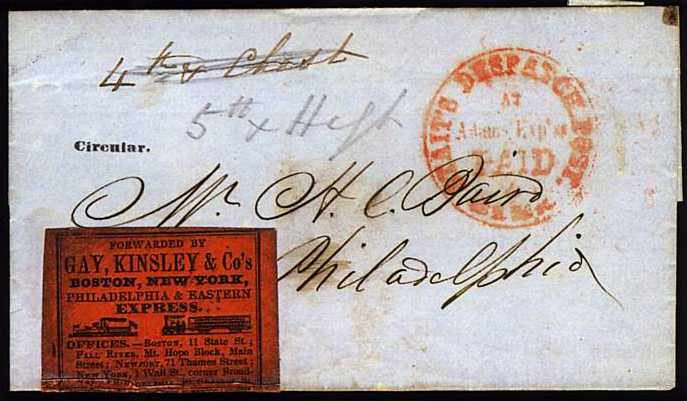 4th & Chest
5th & High
Circular.
'S DESPATCH POST
AT
Adams' Exp's
PAID
Mr. H. C. Baird
Philadelphia
FORWARDED BY
GAY, KINSLEY & Co's
BOSTON, NEW YORK,
PHILADELPHIA & EASTERN
EXPRESS.
OFFICES.—BOSTON, 11 State St.;
FALL RIVER, Mt. Hope Block, Main
Street; NEWPORT, 71 Thames Street;
NEW YORK, 1 Wall St., corner Broad-